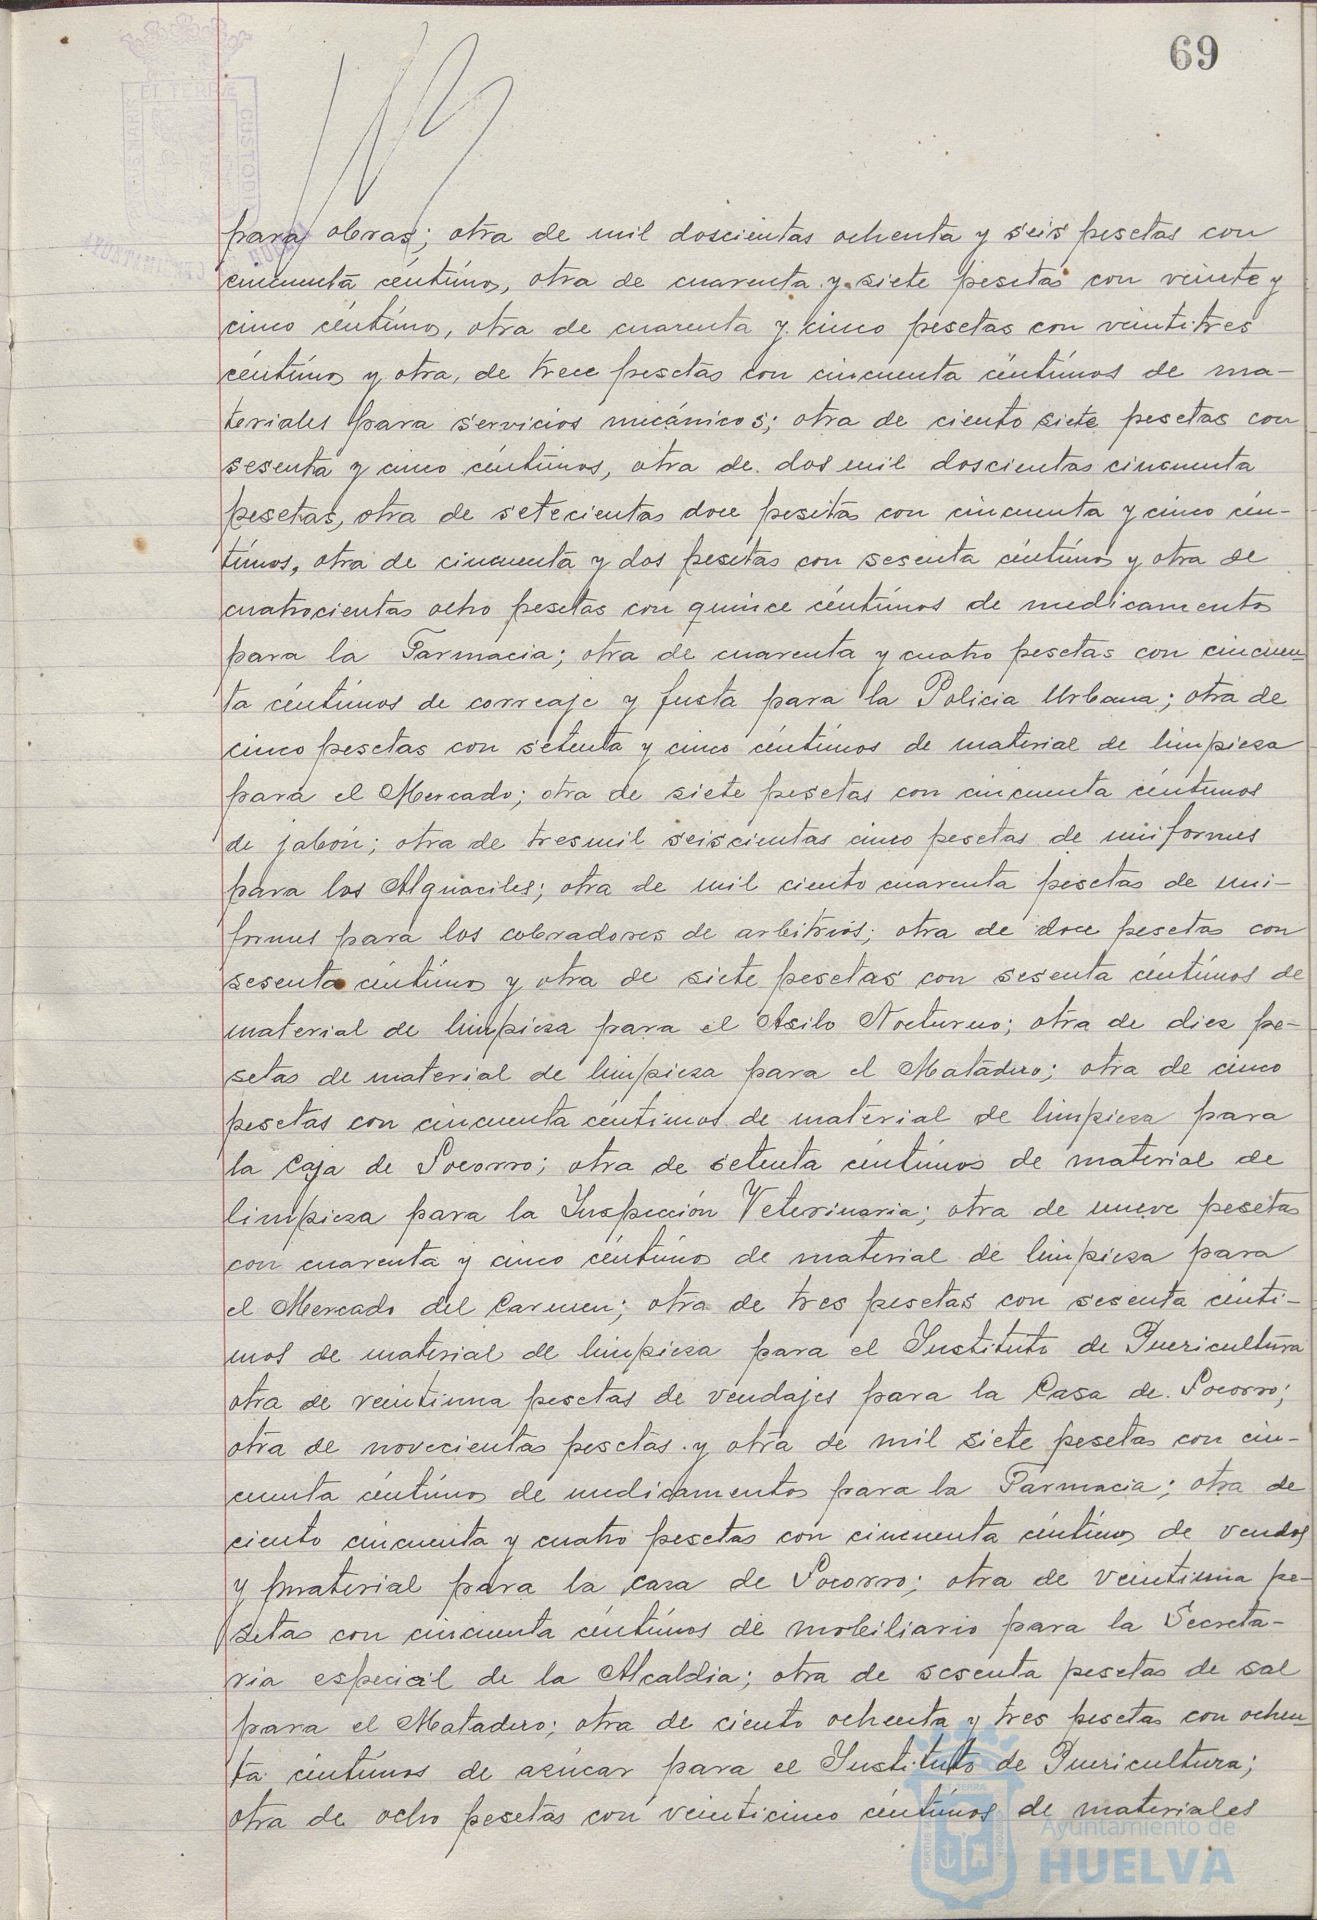 69
EL TERRÆ
CUSTODIA
para obras; otra de mil doscientas ochenta y seis pesetas con
cincuenta céntimos, otra de cuarenta y siete pesetas con veinte y
cinco céntimos, otra de cuarenta y cinco pesetas con veintitres
céntimos y otra, de trece pesetas con cincuenta céntimos de ma-
teriales para servicios mecánicos; otra de ciento siete pesetas con
sesenta y cinco céntimos, otra de dos mil doscientas cincuenta
pesetas, otra de setecientas doce pesetas con cincuenta y cinco cén-
timos, otra de cincuenta y dos pesetas con sesenta céntimos y otra de
cuatrocientas ocho pesetas con quince céntimos de medicamentos
para la Farmacia; otra de cuarenta y cuatro pesetas con cincuen-
ta céntimos de correaje y fusta para la Policia Urbana; otra de
cinco pesetas con setenta y cinco céntimos de material de limpieza
para el Mercado; otra de siete pesetas con cincuenta céntimos
de jabón; otra de tresmil seiscientas cinco pesetas de uniformes
para los Alguaciles; otra de mil ciento cuarenta pesetas de uni-
formes para los cobradores de arbitrios; otra de doce pesetas con
sesenta céntimos y otra de siete pesetas con sesenta céntimos de
material de limpieza para el Asilo Nocturno; otra de diez pe-
setas de material de limpieza para el Matadero; otra de cinco
pesetas con cincuenta céntimos de material de limpieza para
la Caja de Socorro; otra de setenta céntimos de material de
limpieza para la Inspección Veterinaria; otra de nueve pesetas
con cuarenta y cinco céntimos de material de limpieza para
el Mercado del Carmen; otra de tres pesetas con sesenta cénti-
mos de material de limpieza para el Instituto de Puericultura
otra de veintiuna pesetas de vendajes para la Casa de Socorro;
otra de novecientas pesetas y otra de mil siete pesetas con cin-
cuenta céntimos de medicamentos para la Farmacia; otra de
ciento cincuenta y cuatro pesetas con cincuenta céntimos de vendas
y material para la casa de Socorro; otra de veintiuna pe-
setas con cincuenta céntimos de mobiliario para la Secreta-
ria especial de la Alcaldia; otra de sesenta pesetas de sal
para el Matadero; otra de ciento ochenta y tres pesetas con ochen-
ta céntimos de azúcar para el Instituto de Puericultura;
otra de ocho pesetas con veinticinco céntimos de materiales
Ayuntamiento de
HUELVA